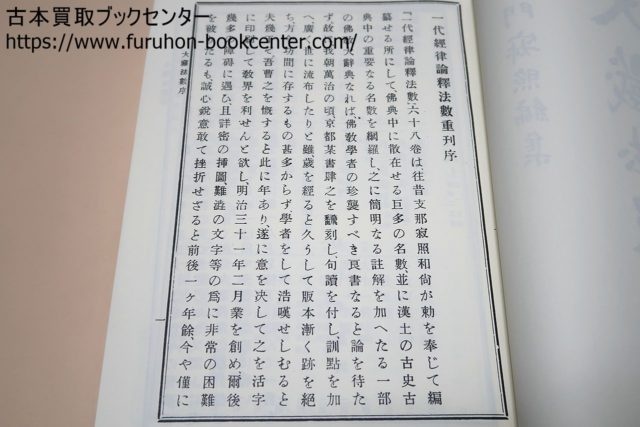 古本買取ブックセンター
https://www.furuhon-bookcenter.com/
一代經律論釋法數重刊序
「一代經律論釋法數」六十八卷は、往昔支那寂照和尙が勅を奉じて編
纂せる所にして、佛典中に散在せる巨多の名數、並に漢土の古史古
典中の重要なる名數を網羅し、之に簡明なる註解を加へたる一部
の佛敎大辭典なれば、佛敎學者の珍襲すべき良書なると論を待た
ず、故に我朝萬治の頃京都某書肆之を飜刻し、句讀を付し、訓點を加
へ、廣く世に流布したりと雖歲を經ると久うして版本漸く跡を絕
ち、方今坊間に存するもの甚多からず、學者をして浩嘆せしむると
夫幾ぞ、吾曹之を慨すると此に年あり、遂に意を決して之を活字
に印して敎界を利せんと欲し、明治三十一年二月業を創め、爾後
幾多の障碍に遇ひ、且詳密の挿圖、難澁の文字等の爲に非常の困難
を被りたるも、誠心銳意敢て挫折せざると前後一ヶ年餘、今や僅に
大藏法數序
一